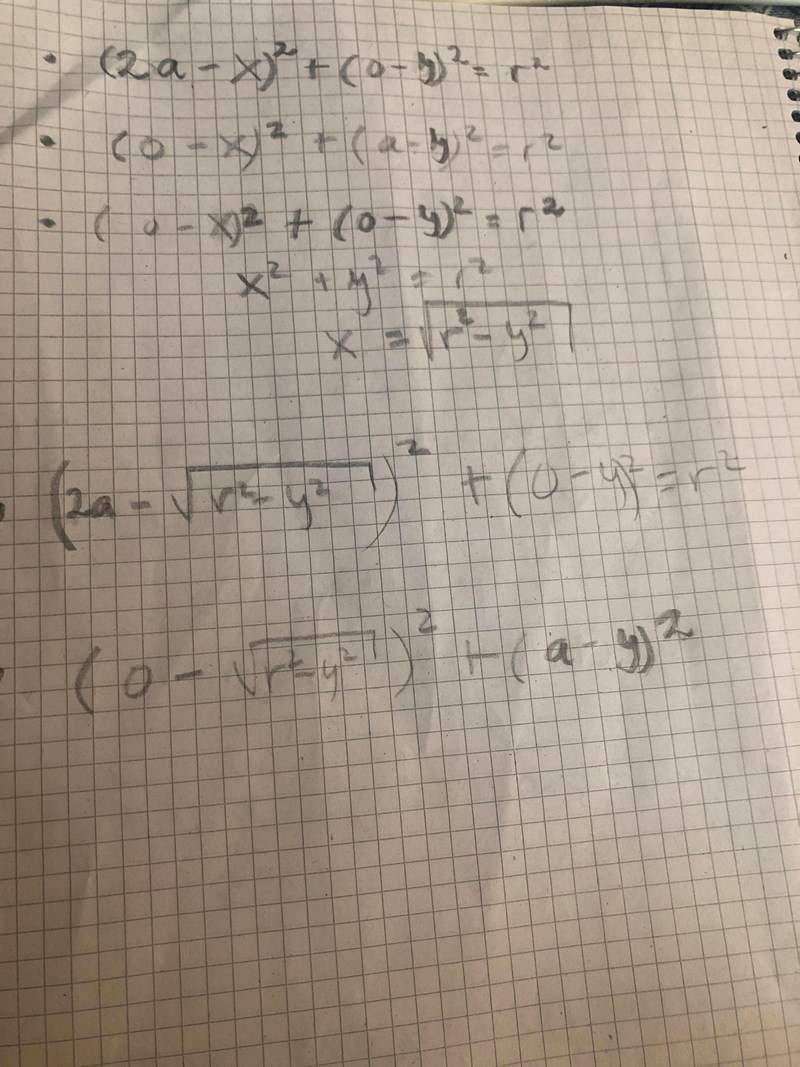 • (2a - x)² + (0 - y)² = r²
• (0 - x)² + (a - y)² = r²
• (0 - x)² + (0 - y)² = r²
x² + y² = r²
x = √(r² - y²)
(2a - √(r² - y²))² + (0 - y)² = r²
(0 - √(r² - y²))² + (a - y)²